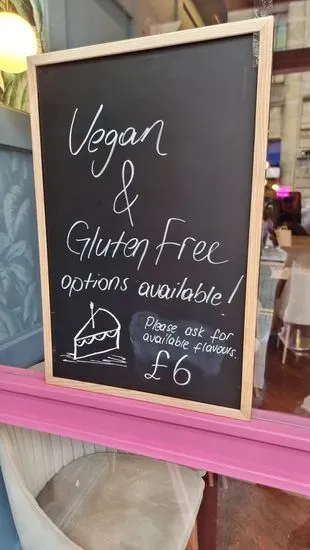 Vegan
&
Gluten Free
options available!
Please ask for
available flavours.
£6